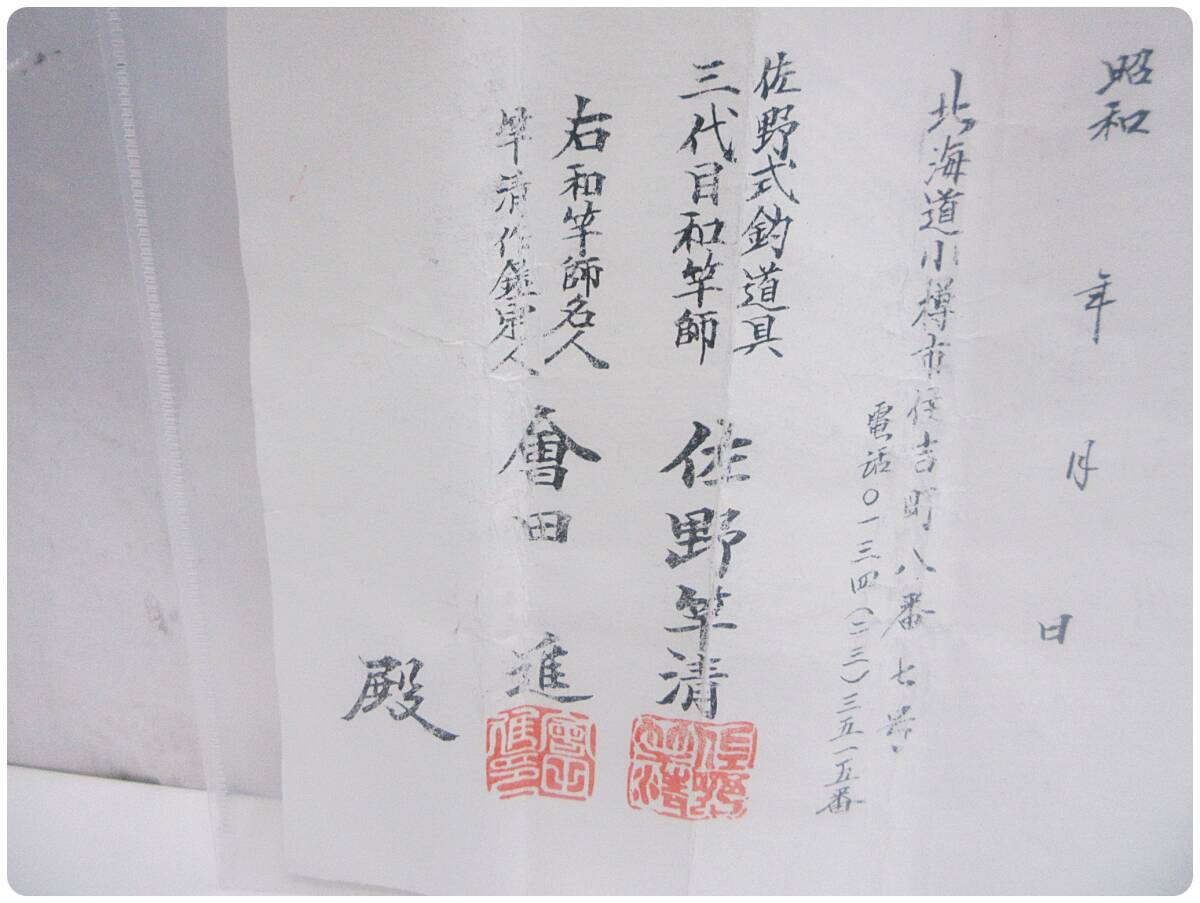 昭和 年 月 日
北海道小樽市住吉町八番七号
電話〇一三四(二三)三五一五番
佐野式釣道具
三代目和竿師 佐野竿清
右和竿師名人
竿清作鑑定人 會田 進
殿
佐野竿清
會田進印